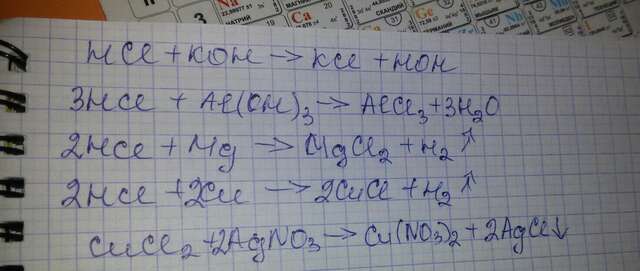 3 Na Ca Ge
НАТРИЙ СКАНДИЙ
HCl + KOH → KCl + HOH
3HCl + Al(OH)3 → AlCl3 + 3H2O
2HCl + Mg → MgCl2 + H2↑
2HCl + 2Cu → 2CuCl + H2↑
CuCl2 + 2AgNO3 → Cu(NO3)2 + 2AgCl↓